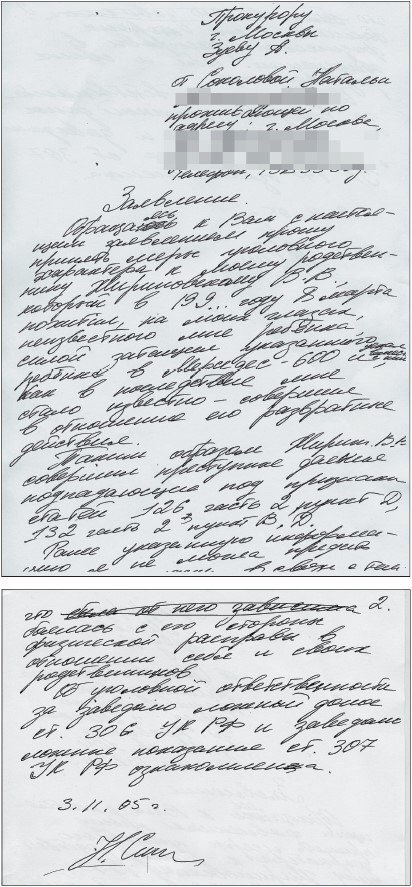 Прокурору
г. Москвы
Зуеву А.
от Соколовой Натальи
проживающей по
адресу: г. Москва,
Телефон,
Заявление.
Обращаюсь к Вам с настоя-
щим заявлением прошу
принять меры уголовного
характера к моему родствен-
нику Жириновскому В.В,
который в 199... году 8 марта
похитил, на моих глазах,
неизвестного мне ребёнка,
силой затащил указанного
ребёнка в Мерседес-600 и,
как в последствие мне
стало известно - совершил
в отношение его развратные
действия.
Таким образом Жирин. В.В.
совершил преступные деяния
подпадающие под признаки
статей 126 часть 2 пункт Д,
132 часть 2 3 пункт В, Д.
Ранее указанную информа-
цию я не могла
в связи с тем
что была от него зависима 2.
боялась с его стороны
физической расправы в
отношении себя и своих
родственников
Об уголовной ответственности
за заведомо ложный донос
ст. 306 УК РФ и заведомо
ложные показания ст. 307
УК РФ ознакомлена.
3.11.05 г.